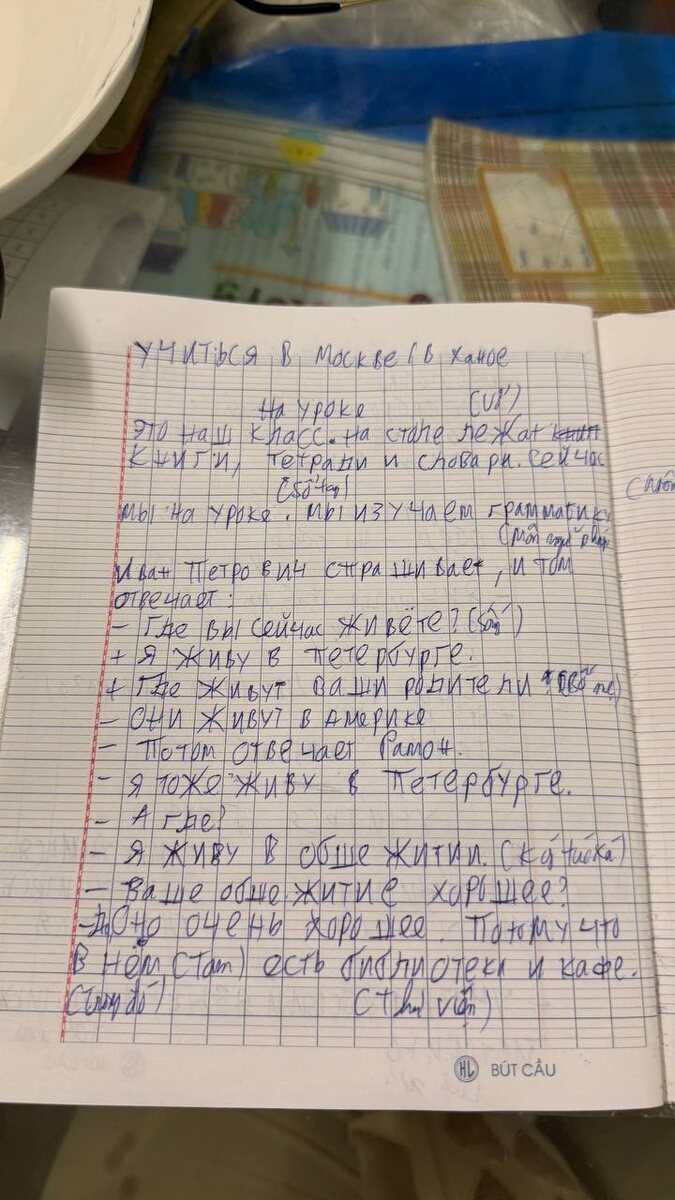 УЧИТЬСЯ В МОСКВЕ (В Ханое
На уроке (vở)
Это наш класс. На столе лежат
книги, тетради и словари. Сейчас
мы на уроке. Мы изучаем грамматику
(môn ngữ pháp
Иван Петрович спрашивает, и Том
отвечает:
- Где вы сейчас живёте? (sống)
+ Я живу в Петербурге.
+ Где живут ваши родители? (bố mẹ)
- Они живут в Америке
- Потом отвечает Рамон.
- Я тоже живу в Петербурге.
- А где?
- Я живу в общежитии. (Ký túc xá)
- Ваше общежитие хорошее?
- Да Оно очень хорошее. Потому что
в нём (там) есть библиотеки и кафе.
(trong đó) (thư viện)
HL BÚT CẦU